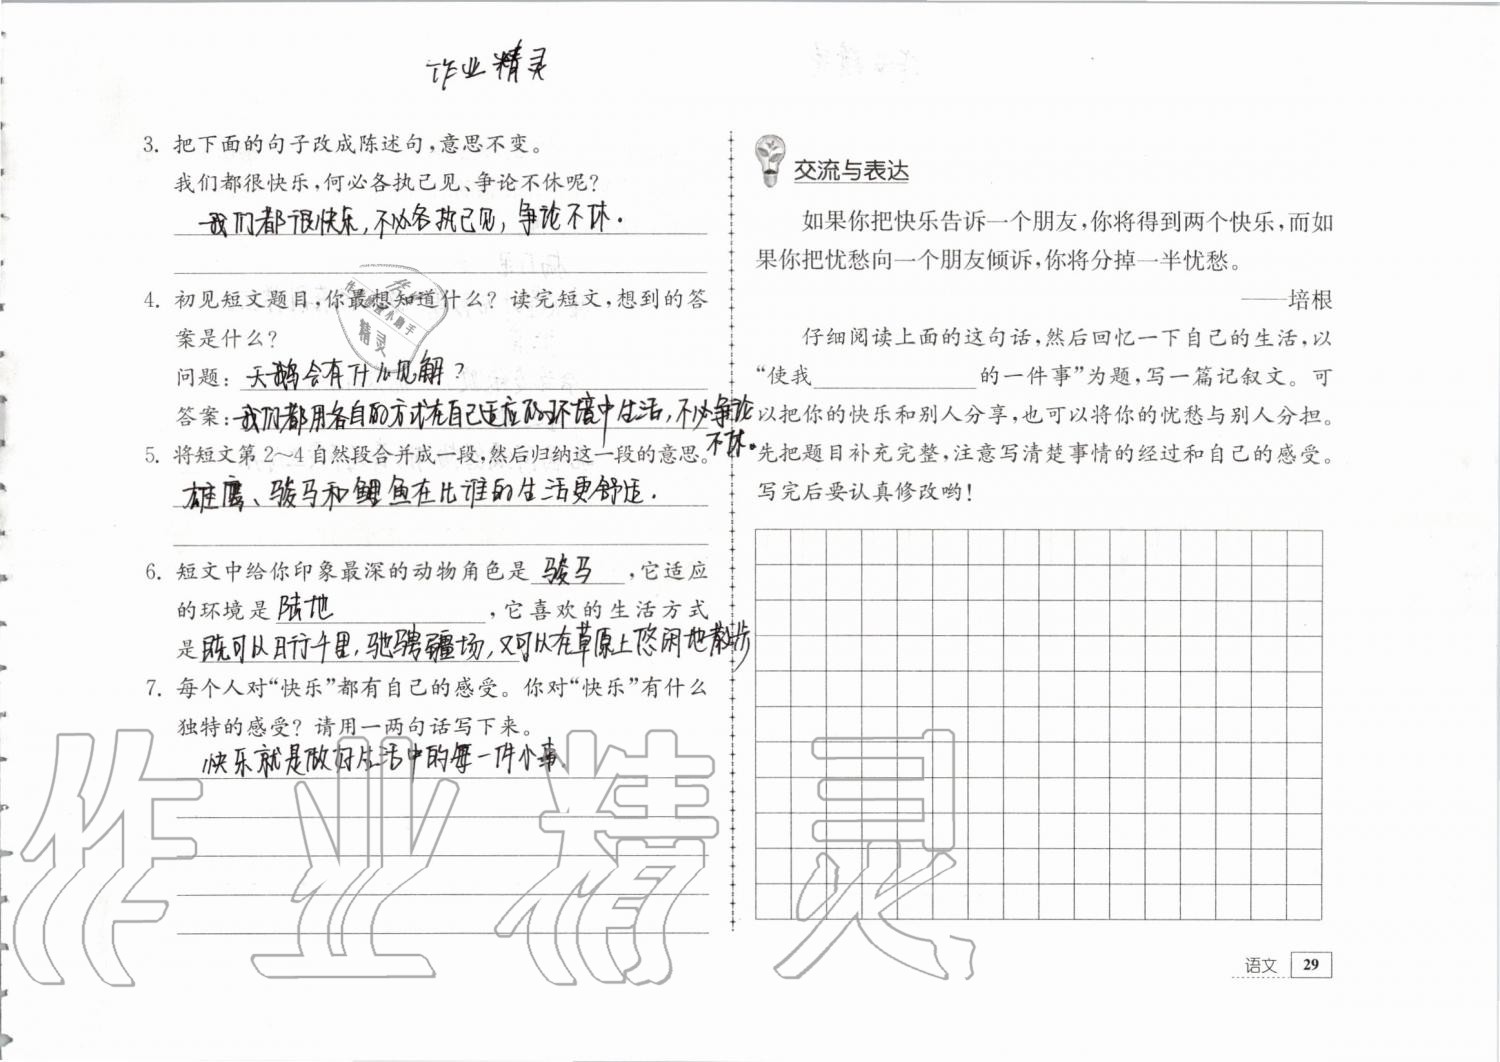 作业精灵
3. 把下面的句子改成陈述句,意思不变。
我们都很快乐,何必各执己见、争论不休呢?
我们都很快乐,不必各执己见,争论不休.
4. 初见短文题目,你最想知道什么? 读完短文,想到的答
案是什么?
问题: 天鹅会有什么见解?
答案: 我们都用各自的方式在自己适应的环境中生活,不必争论
不休。
5. 将短文第2~4自然段合并成一段,然后归纳这一段的意思。
雄鹰、骏马和鲤鱼在比谁的生活更舒适.
6. 短文中给你印象最深的动物角色是 骏马 ,它适应
的环境是 陆地 ,它喜欢的生活方式
是 既可以日行千里,驰骋疆场,又可以在草原上悠闲地散步
7. 每个人对“快乐”都有自己的感受。你对“快乐”有什么
独特的感受? 请用一两句话写下来。
快乐就是做好生活中的每一件小事.
作业精灵
交流与表达
如果你把快乐告诉一个朋友,你将得到两个快乐,而如
果你把忧愁向一个朋友倾诉,你将分掉一半忧愁。
——培根
仔细阅读上面的这句话,然后回忆一下自己的生活,以
“使我____________的一件事”为题,写一篇记叙文。可
以把你的快乐和别人分享,也可以将你的忧愁与别人分担。
先把题目补充完整,注意写清楚事情的经过和自己的感受。
写完后要认真修改哟!
语文 29